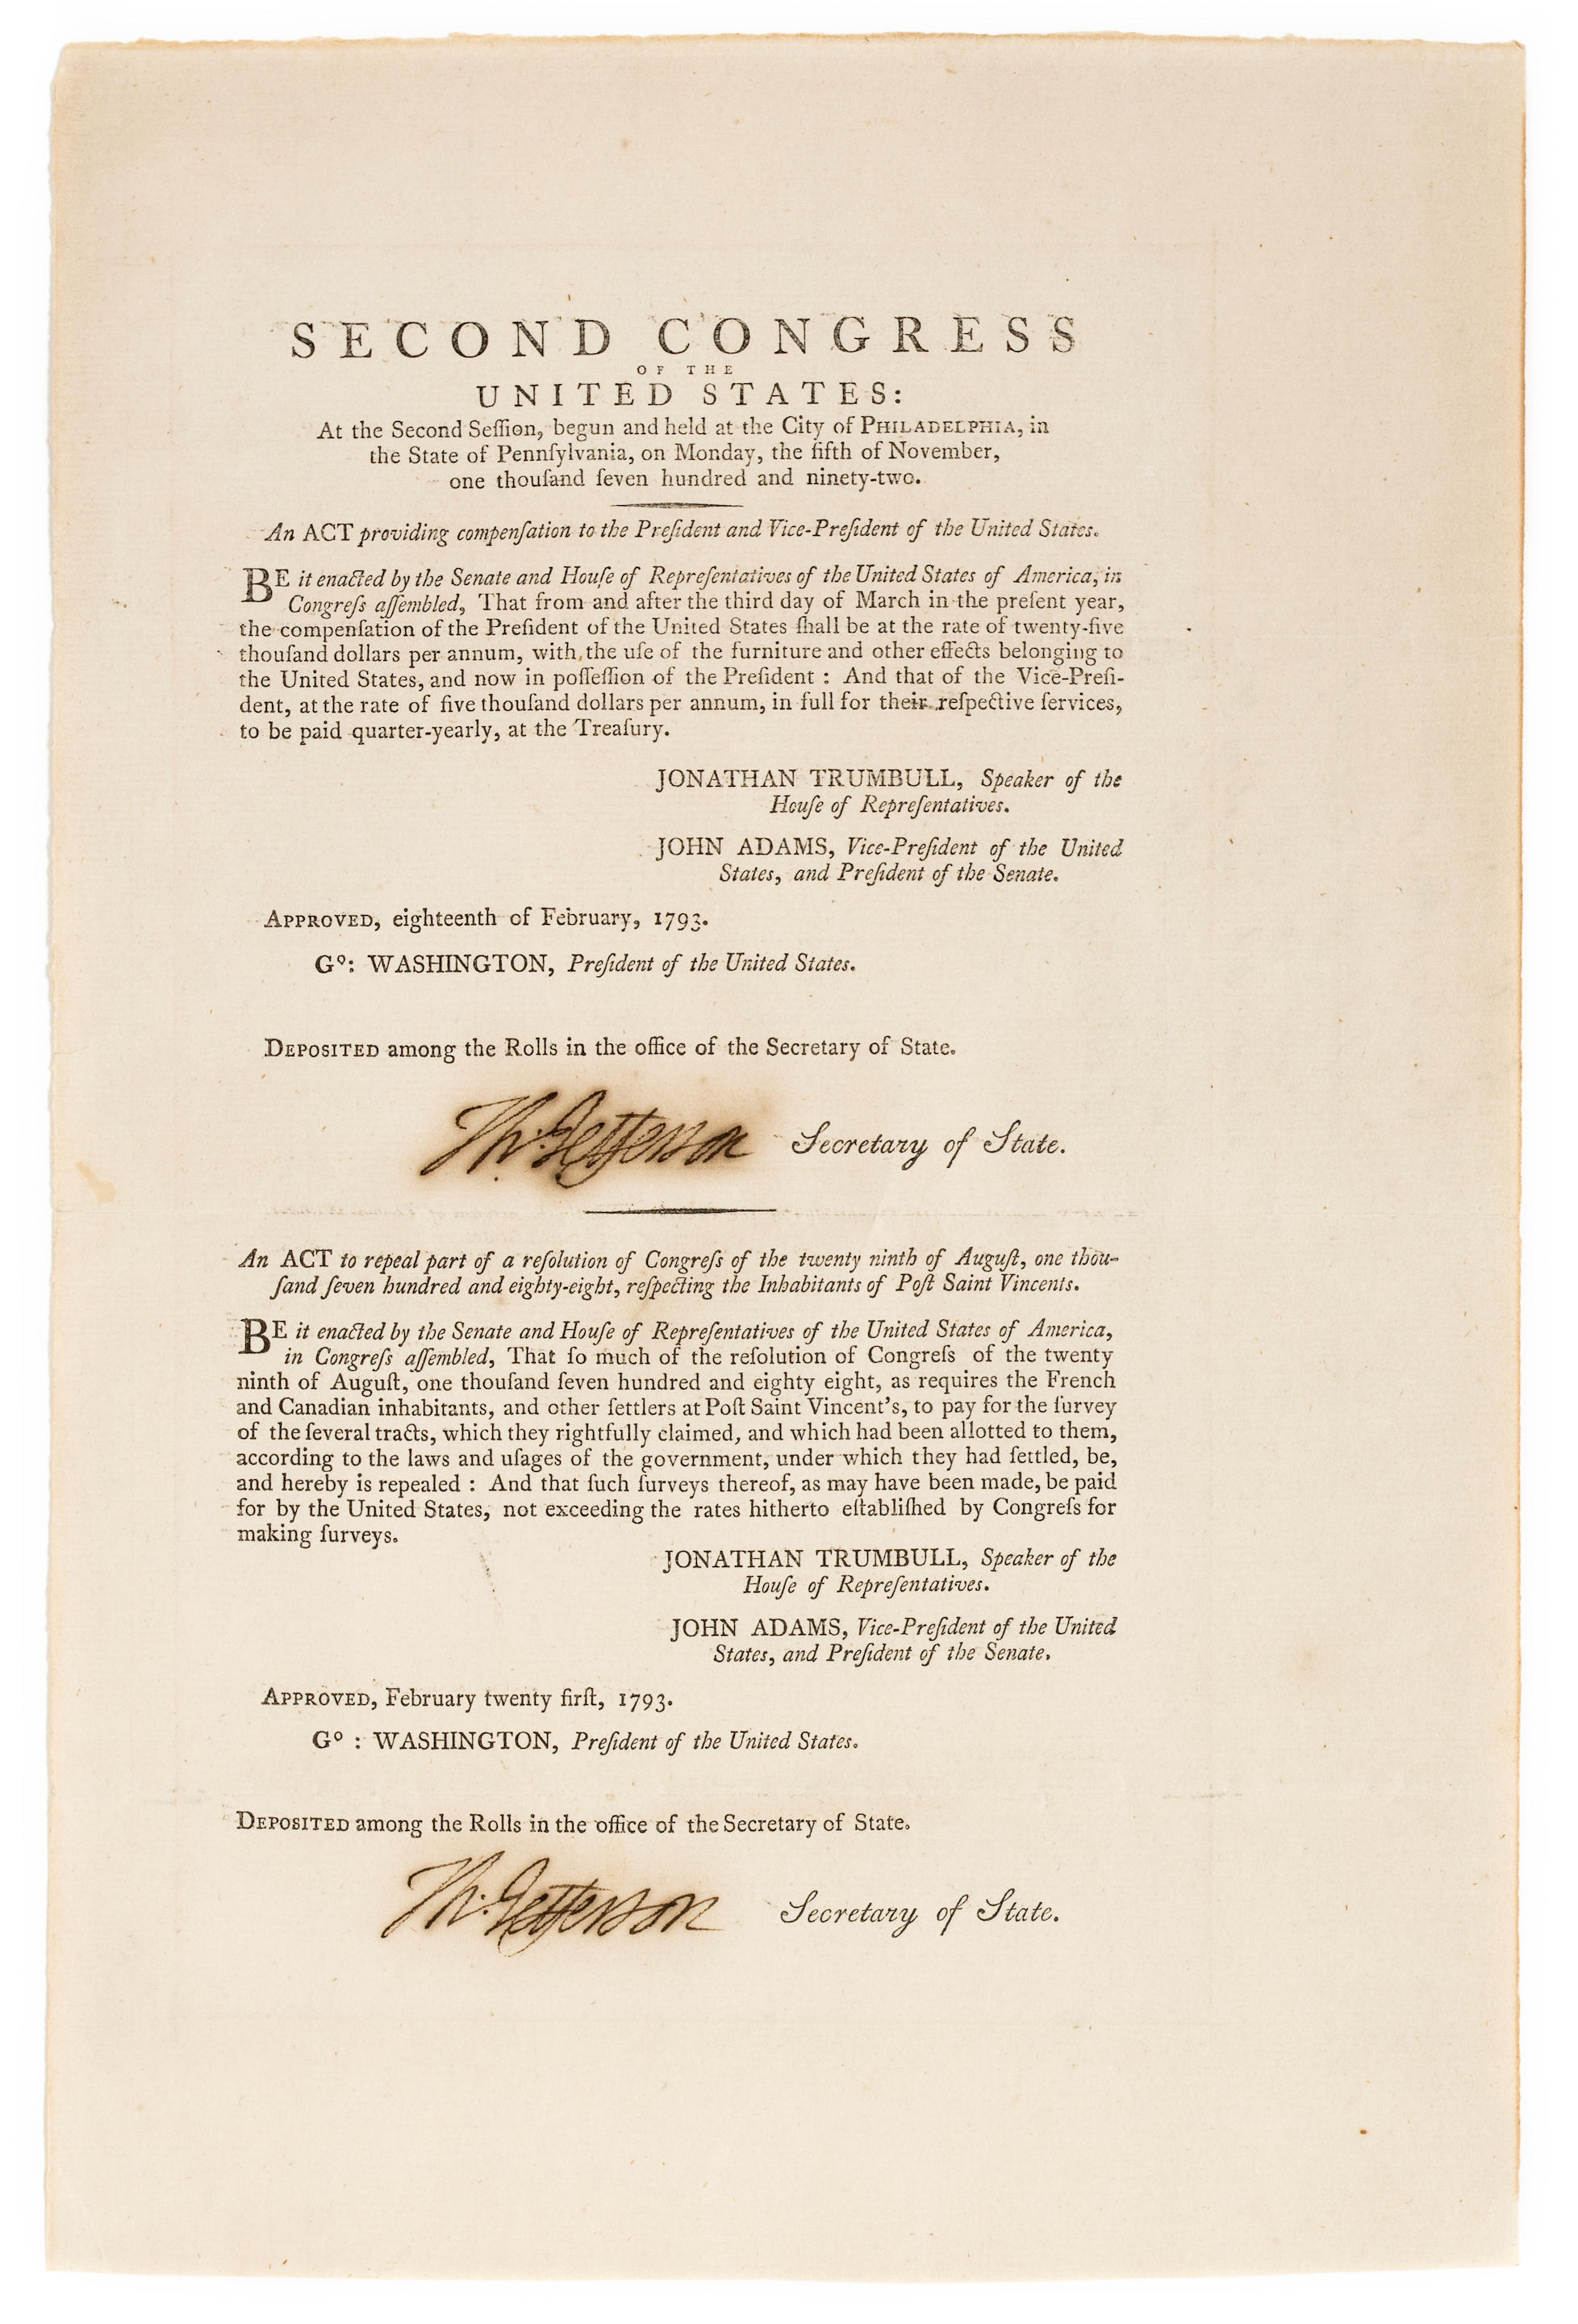 SECOND CONGRESS
OF THE
UNITED STATES:
At the Second Seſſion, begun and held at the City of PHILADELPHIA, in
the State of Pennſylvania, on Monday, the fifth of November,
one thouſand ſeven hundred and ninety-two.
An ACT providing compenſation to the Preſident and Vice-Preſident of the United States.
BE it enacted by the Senate and Houſe of Repreſentatives of the United States of America, in
Congreſs aſſembled, That from and after the third day of March in the preſent year,
the compenſation of the Preſident of the United States ſhall be at the rate of twenty-five
thouſand dollars per annum, with the uſe of the furniture and other effects belonging to
the United States, and now in poſſeſſion of the Preſident : And that of the Vice-Preſi-
dent, at the rate of five thouſand dollars per annum, in full for their reſpective ſervices,
to be paid quarter-yearly, at the Treaſury.
JONATHAN TRUMBULL, Speaker of the
Houſe of Repreſentatives.
JOHN ADAMS, Vice-Preſident of the United
States, and Preſident of the Senate.
APPROVED, eighteenth of February, 1793.
Gº: WASHINGTON, Preſident of the United States.
DEPOSITED among the Rolls in the office of the Secretary of State.
Th: Jefferson Secretary of State.
An ACT to repeal part of a reſolution of Congreſs of the twenty ninth of Auguſt, one thou-
ſand ſeven hundred and eighty-eight, reſpecting the Inhabitants of Poſt Saint Vincents.
BE it enacted by the Senate and Houſe of Repreſentatives of the United States of America,
in Congreſs aſſembled, That ſo much of the reſolution of Congreſs of the twenty
ninth of Auguſt, one thouſand ſeven hundred and eighty eight, as requires the French
and Canadian inhabitants, and other ſettlers at Poſt Saint Vincent's, to pay for the ſurvey
of the ſeveral tracts, which they rightfully claimed, and which had been allotted to them,
according to the laws and uſages of the government, under which they had ſettled, be,
and hereby is repealed : And that ſuch ſurveys thereof, as may have been made, be paid
for by the United States, not exceeding the rates hitherto eſtabliſhed by Congreſs for
making ſurveys.
JONATHAN TRUMBULL, Speaker of the
Houſe of Repreſentatives.
JOHN ADAMS, Vice-Preſident of the United
States, and Preſident of the Senate.
APPROVED, February twenty firſt, 1793.
Gº : WASHINGTON, Preſident of the United States.
DEPOSITED among the Rolls in the office of the Secretary of State.
Th: Jefferson Secretary of State.